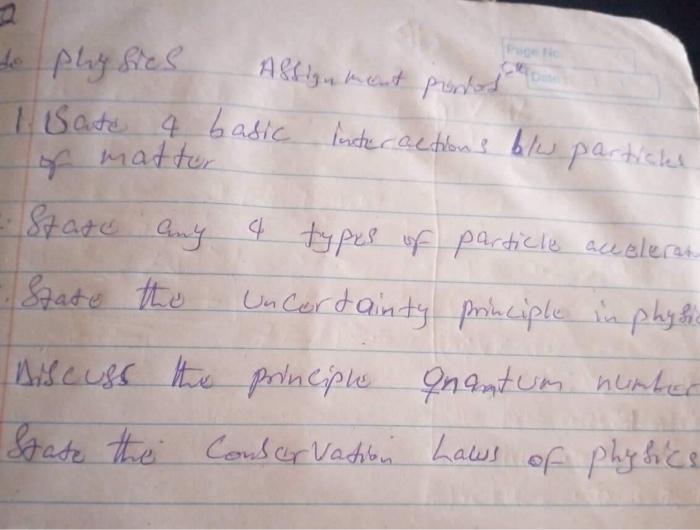 Physics Assignment period
Page No.
Date
1. State 4 basic interactions b/w particles
of matter
State any 4 types of particle accelerat
State the Uncertainty principle in physic
Discuss the principle quantum number
State the Conservation Laws of physics